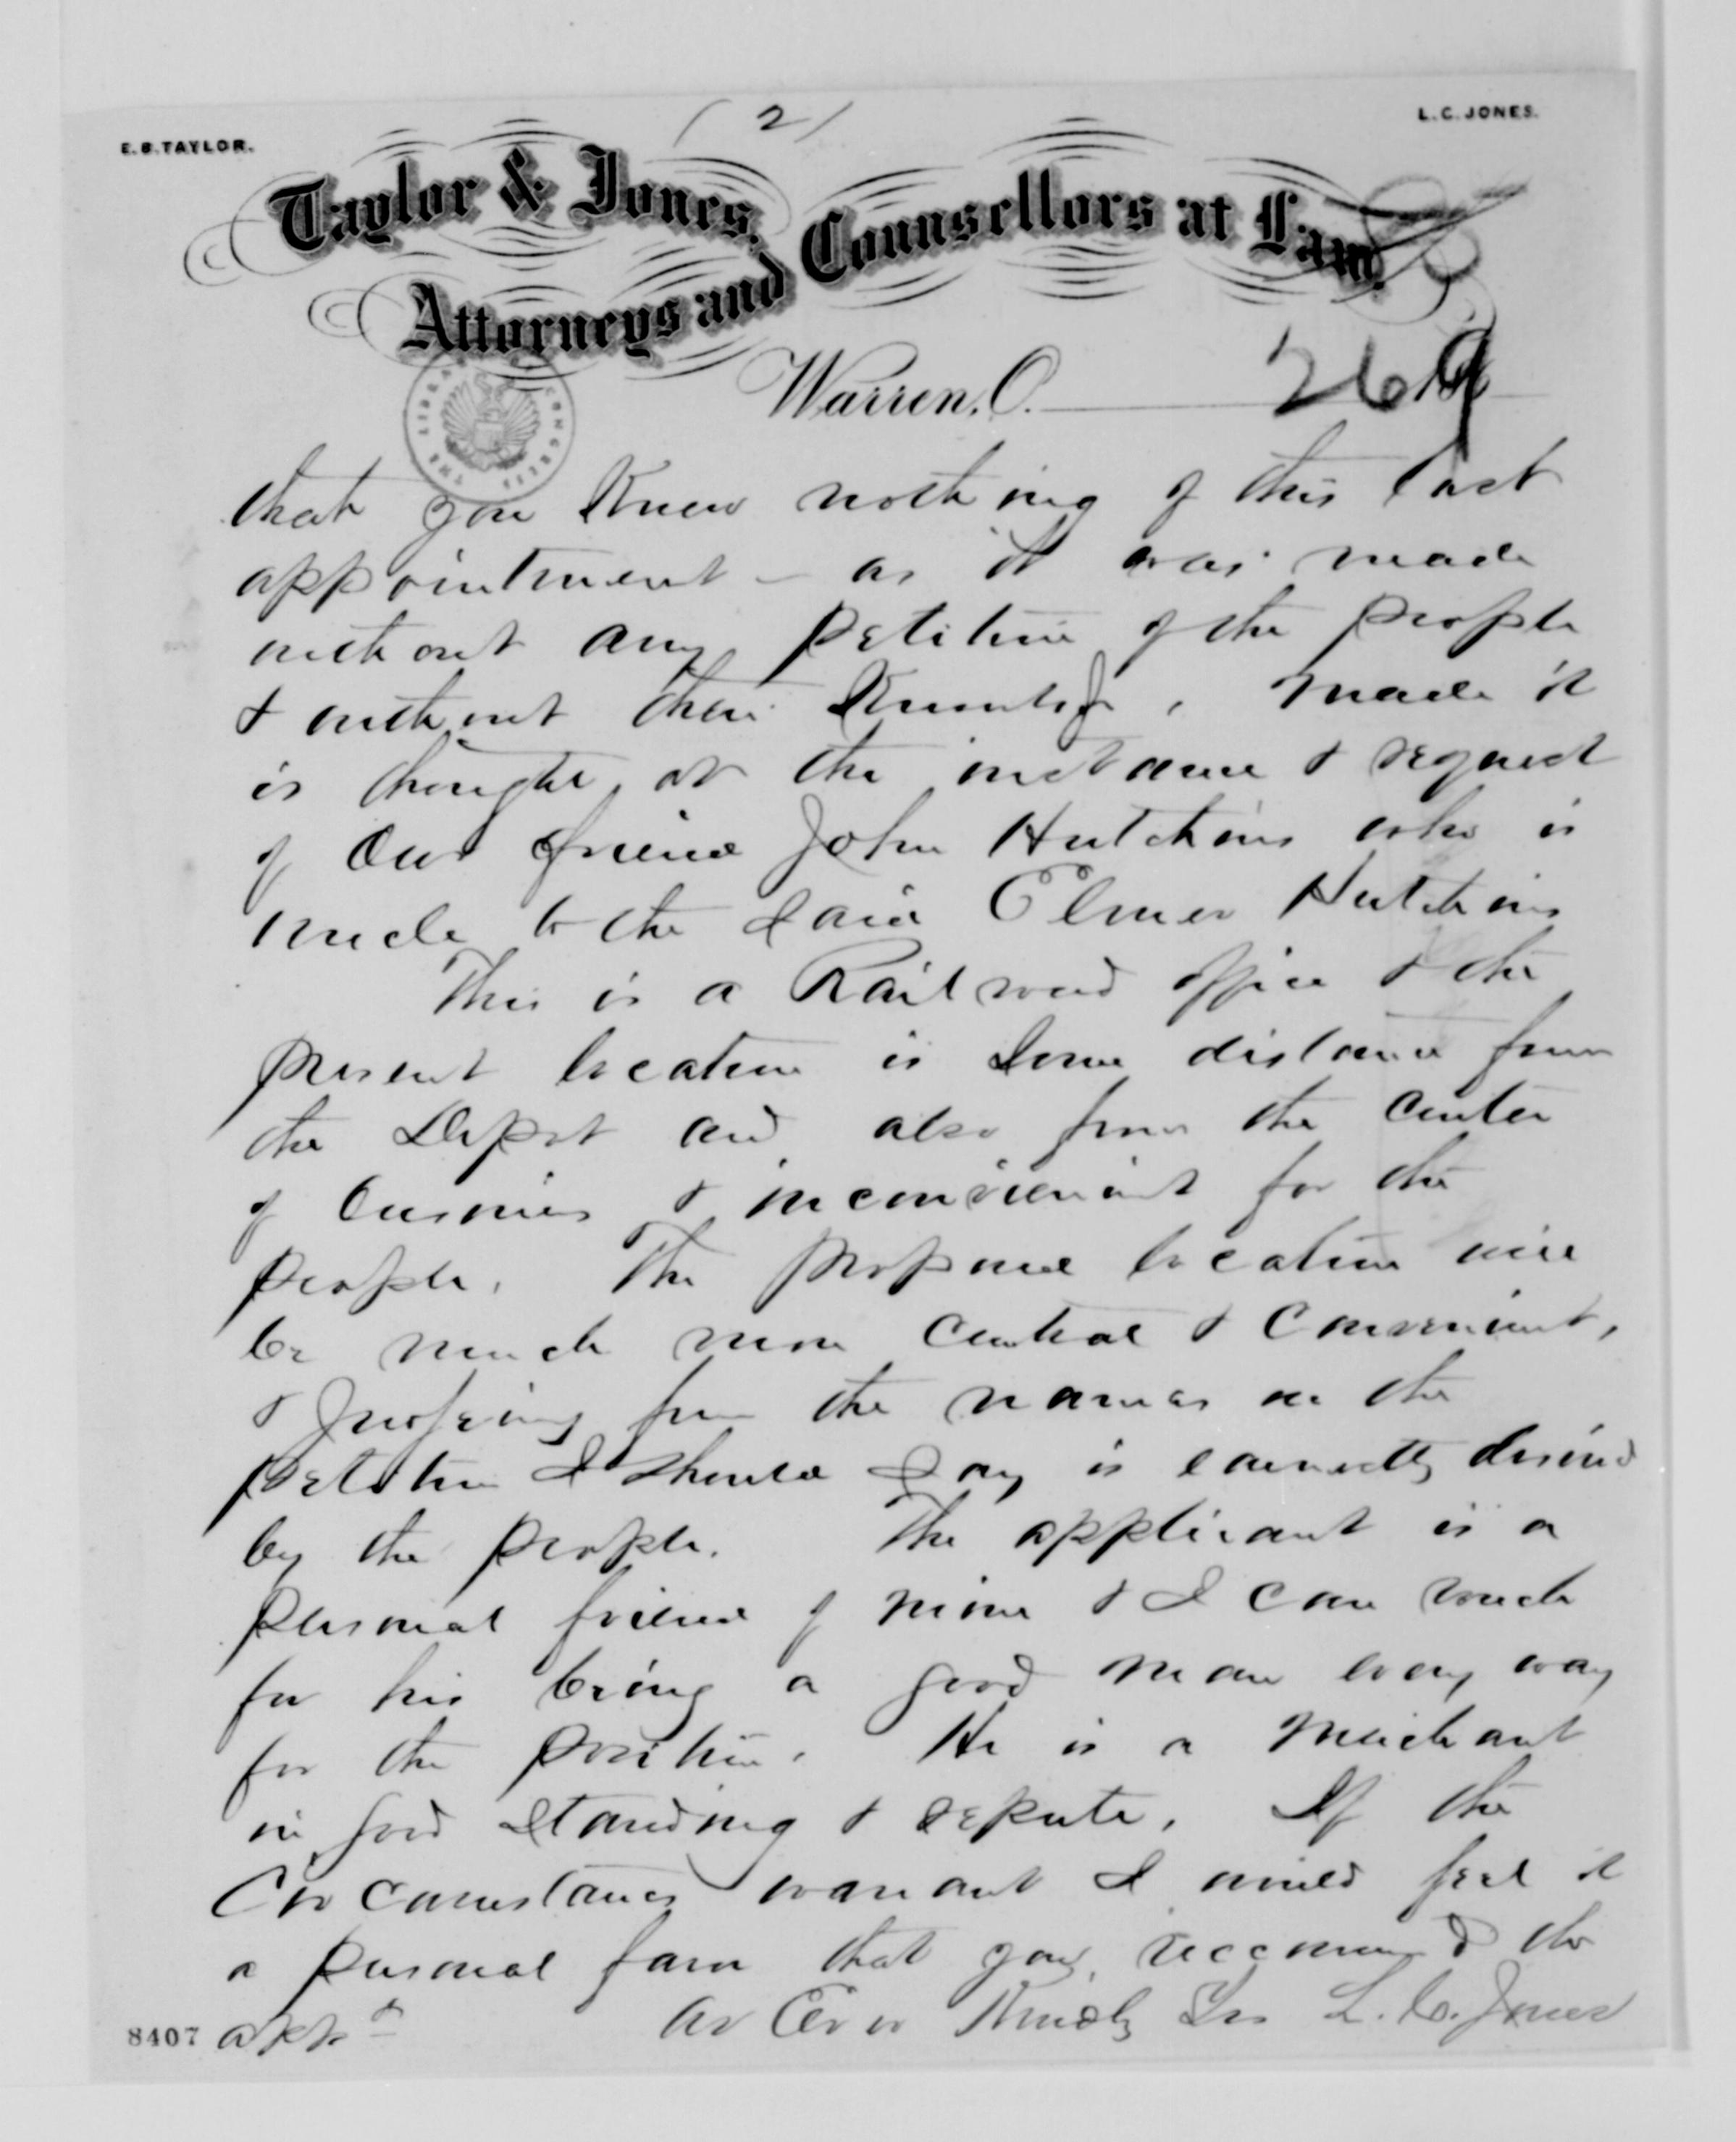 (2)
E.B. TAYLOR.
L.C. JONES.
Taylor & Jones,
Attorneys and Counsellors at Law.
Warren, O. 269
THE LIBRARY CONGRESS
that you knew nothing of this last
appointment – as it was made
without any petition of the people
& without their knowledge, made it
is thought at the instance & request
of our friend John Hutchins who is
uncle to the said Elmer Hutchins
This is a Railroad office & the
present location is some distance from
the Depot and also from the center
of business & inconvenient for the
people. The proposed location will
be much more central & convenient,
& judging from the names on the
petition I should say is earnestly desired
by the people. The applicant is a
personal friend of mine & I can vouch
for his being a good man every way
for the position. He is a merchant
in good standing & repute. If the
circumstances warrant I would feel it
a personal favor that you recommend the
appt
As Ever Kindly Yrs L. C. Jones
8407